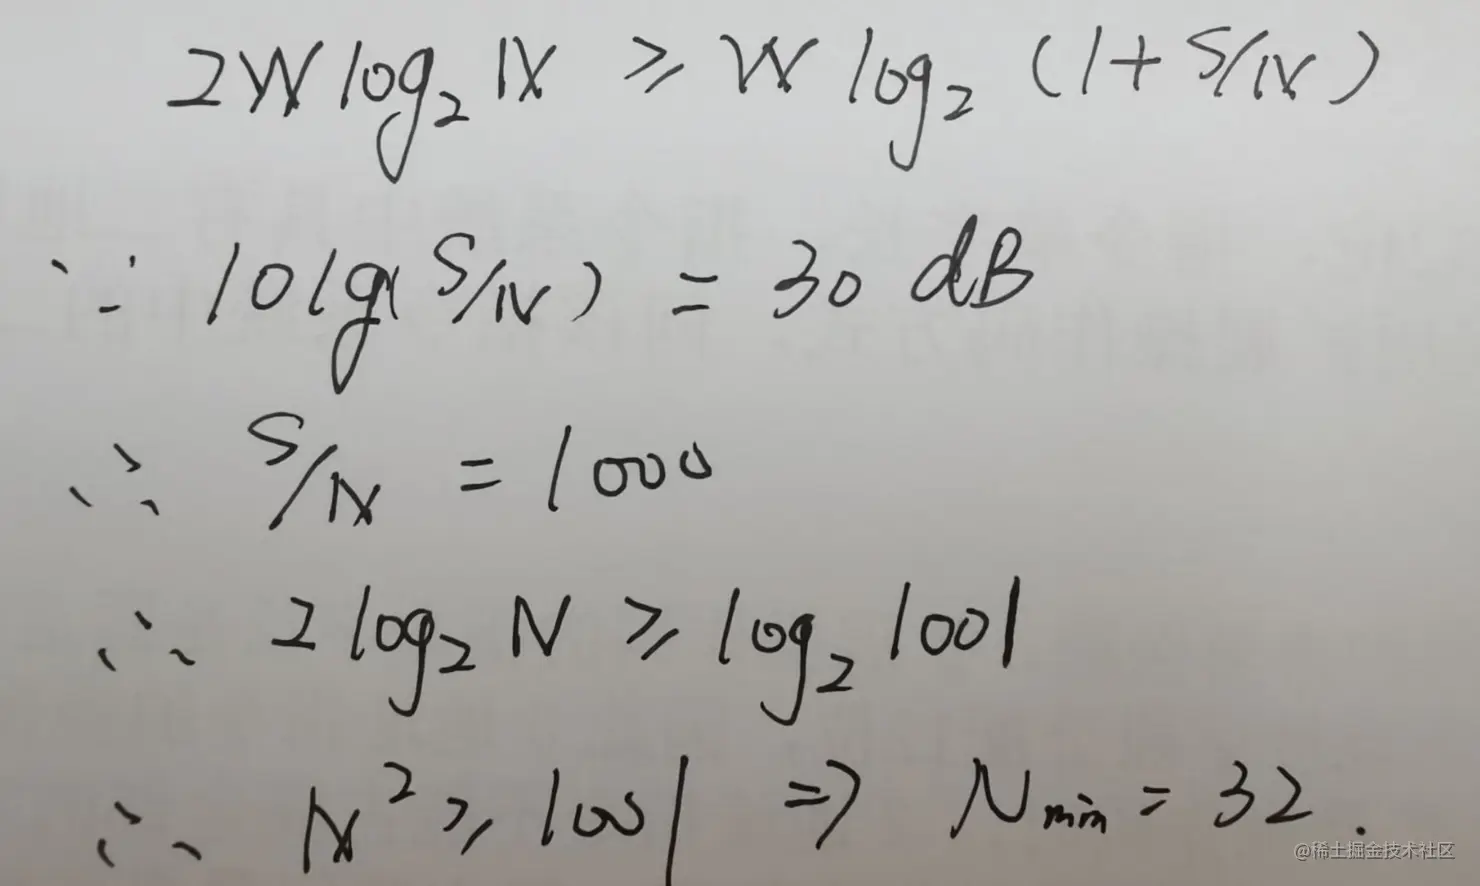 2W log₂ N ≥ W log₂ (1 + S/N)
∵ 10 lg(S/N) = 30 dB
∴ S/N = 1000
∴ 2 log₂ N ≥ log₂ 1001
∴ N² ≥ 1001 ⇒ Nmin = 32.
@稀土掘金技术社区